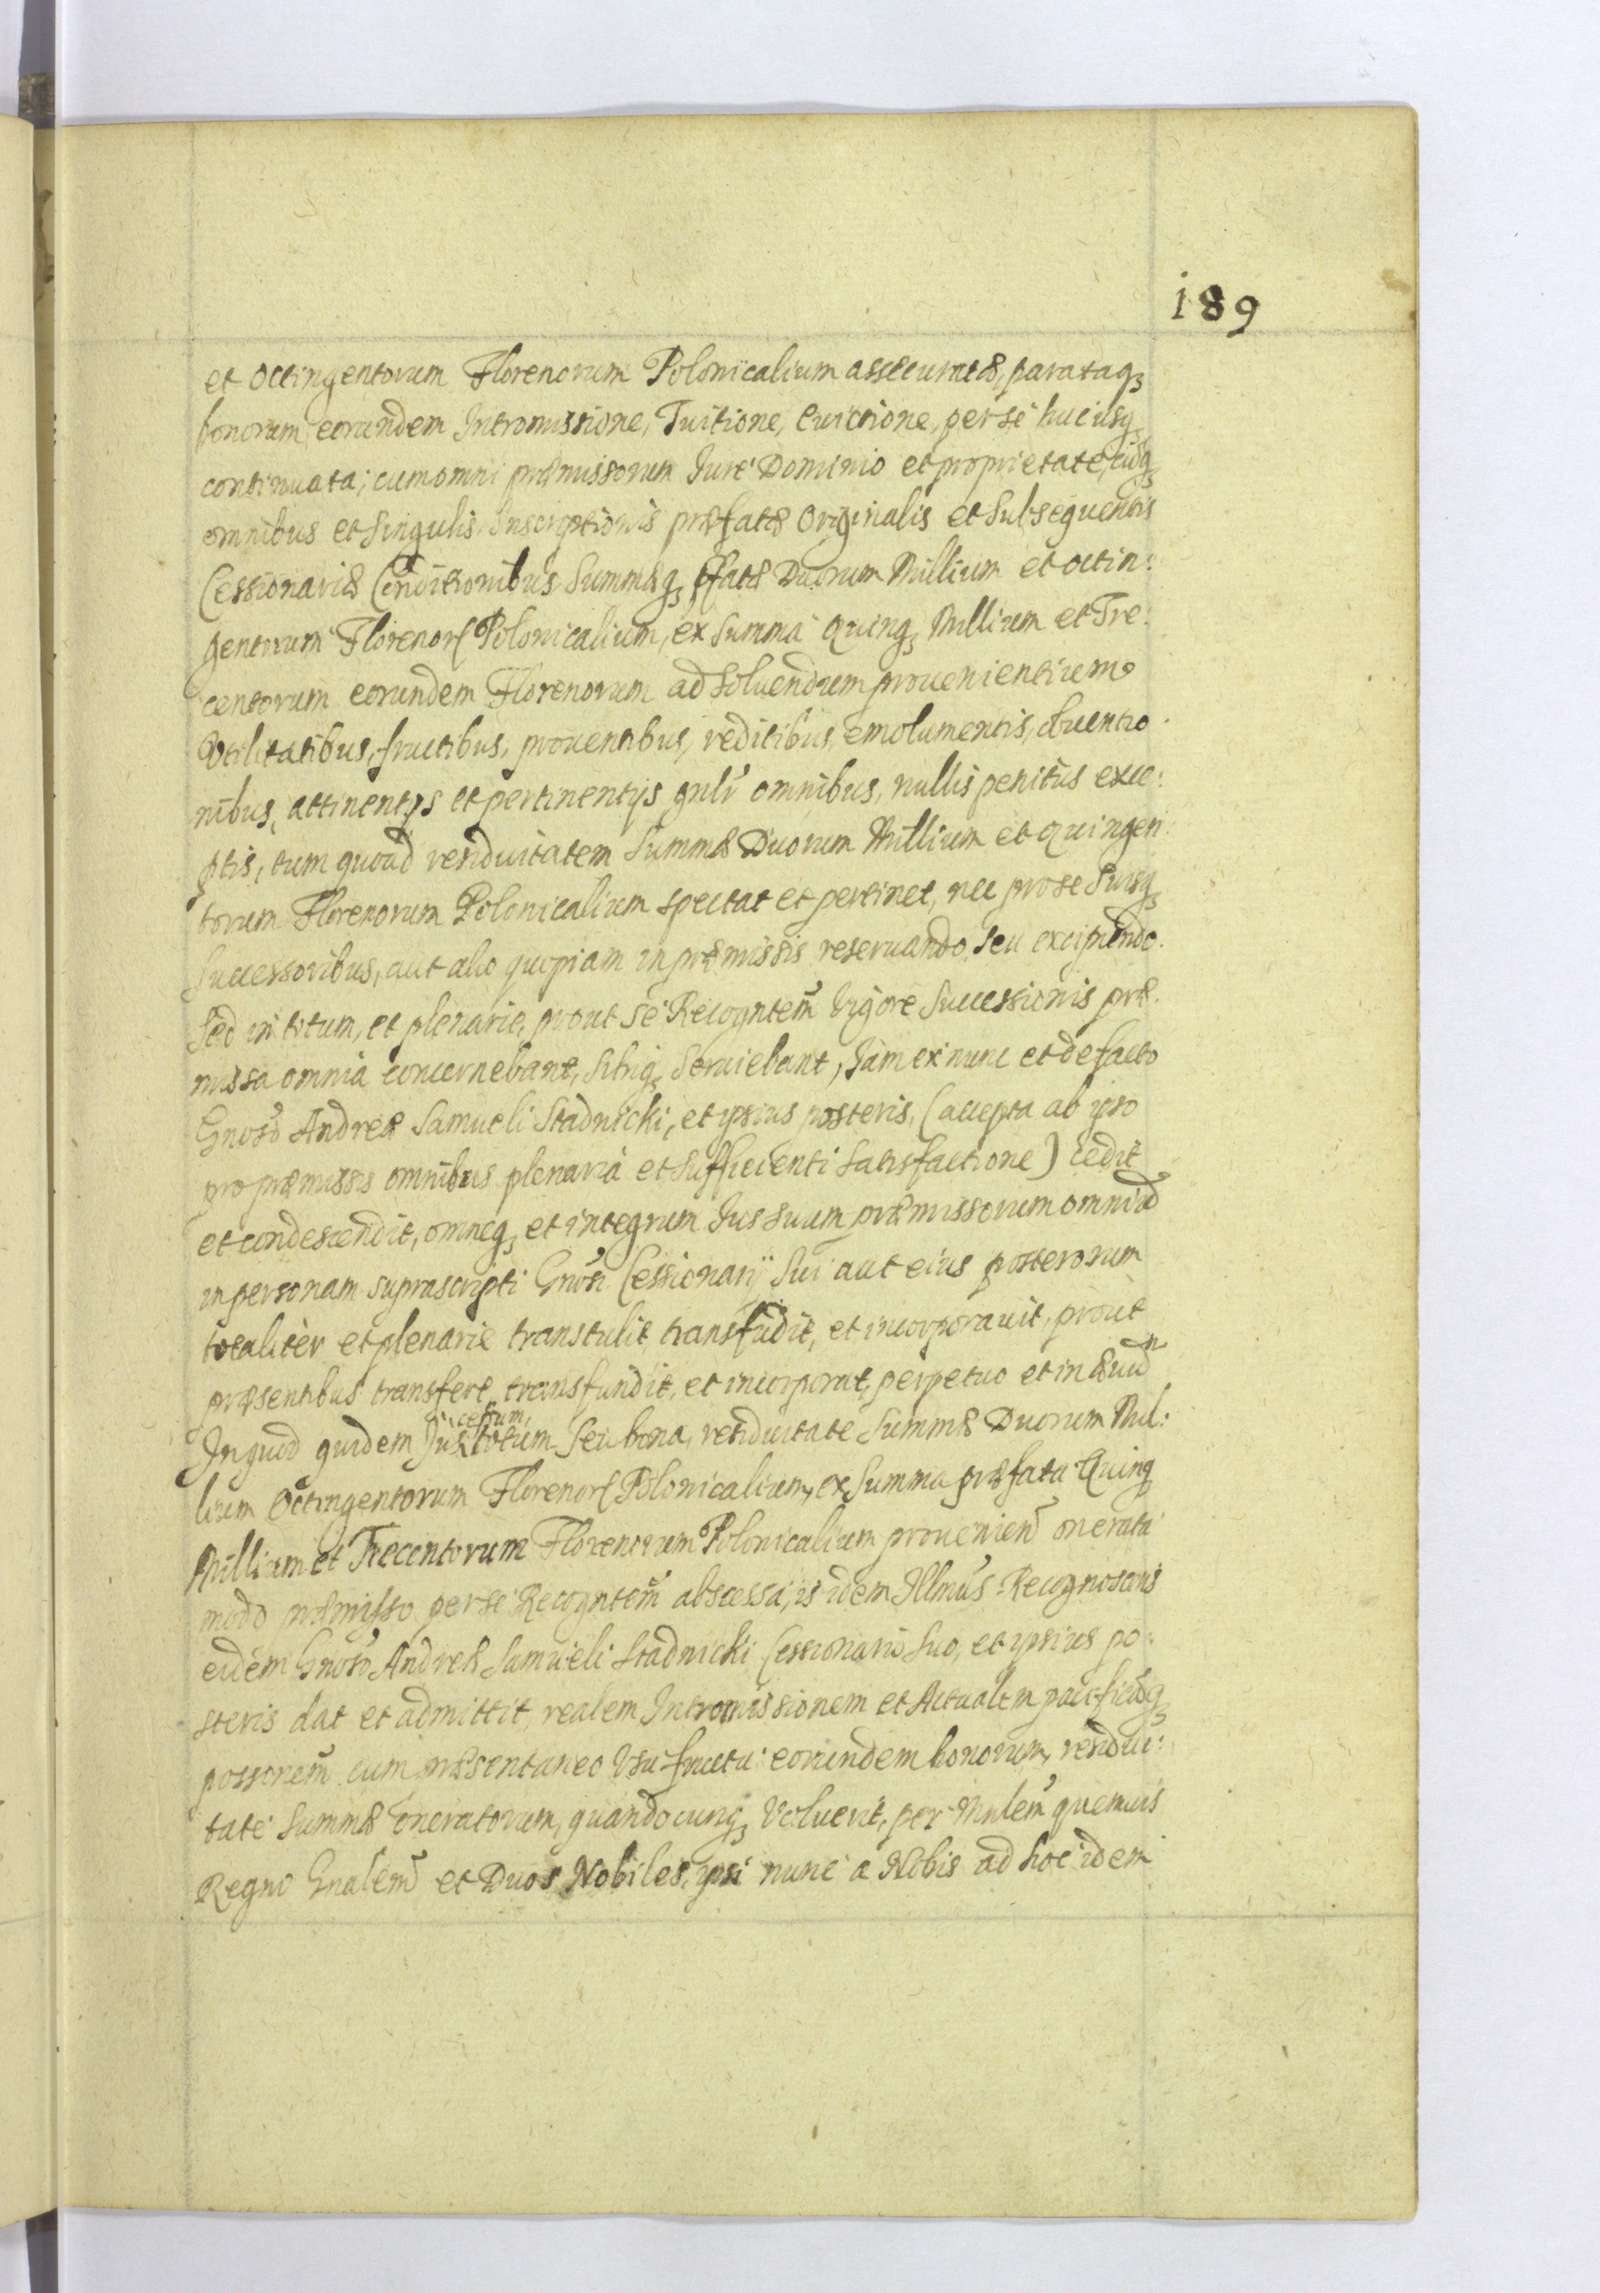 189
et octingentorum Florenorum Polonicalium assecuratæ, parataq;
bonorum eorundem Intromissione, Tuitione, Euictione, per se hucusq;
continuata; cum omni præmissorum Jure Dominio et proprietate, cũq;
omnibus et singulis Inscriptionis præfatæ Originalis et Subsequentis
Cessionariæ Conditionibus Summæq; pfatæ Duorum Millium et octin:
gentorum Florenor Polonicalium, ex summa Quinq; Millium et Tre:
centorum eorundem Florenorum ad soluendum prouenientium
Vtilitatibus, fructibus, prouentibus, reditibus, emolumentis, obuentio
nibus, attinentijs et pertinentijs gnlr omnibus, nullis penitus exce:
ptis, tum quoad residuitatem Summæ Duorum Millium et quingen
torum Florenorum Polonicalium spectat et pertinet, nec pro se Suisq;
Successoribus, aut alio quopiam in præmissis reseruando seu excipiendo.
Sed in totum, et plenarie, prout se Recogntem Vigore Successionis præ
missa omnia concernebant, sibiq; Seruiebant, Jam ex nunc et de facto
Gnoso Andreæ Samueli Stadnicki, et ipsius posteris, (accepta ab ipso
pro præmissis omnibus plenaria et Sufficienti Satisfactione) cedit
et condescendit, omneq; et integrum Jus Suum præmissorum omniũ
in personam suprascripti Gnosi Cessionarij Sui aut eius posterorum
totaliter et plenarie transtulit, transfudit, et incorporauit, prout
præsentibus transfert, transfundit, et incorporat, perpetuo et in æuũ
In quod quidem Jus cessum, totum Seu bona, residuitate Summæ Duorum Mil:
lium Octingentorum Florenor Polonicalium, ex Summa præfata Quinq
Millium et Trecentorum Florenorum Polonicalium prouenien onerata
modo præmisso per se Recogntem abscessa, is idem Illmus Recognoscens
eidem Gnoso Andreæ Samueli Stadnicki Cessionario Suo, et ipsius po:
steris dat et admittit, realem Intromissionem et Actualem pacificãq;
possonem cum præsentaneo Vsufructu eorundem bonorum, residui:
tate Summæ oneratorum, quandocunq; Voluerit, per Mnlem quemuis
Regni Gnalem et Duos Nobiles, ipsi nunc a Nobis ad hoc idem